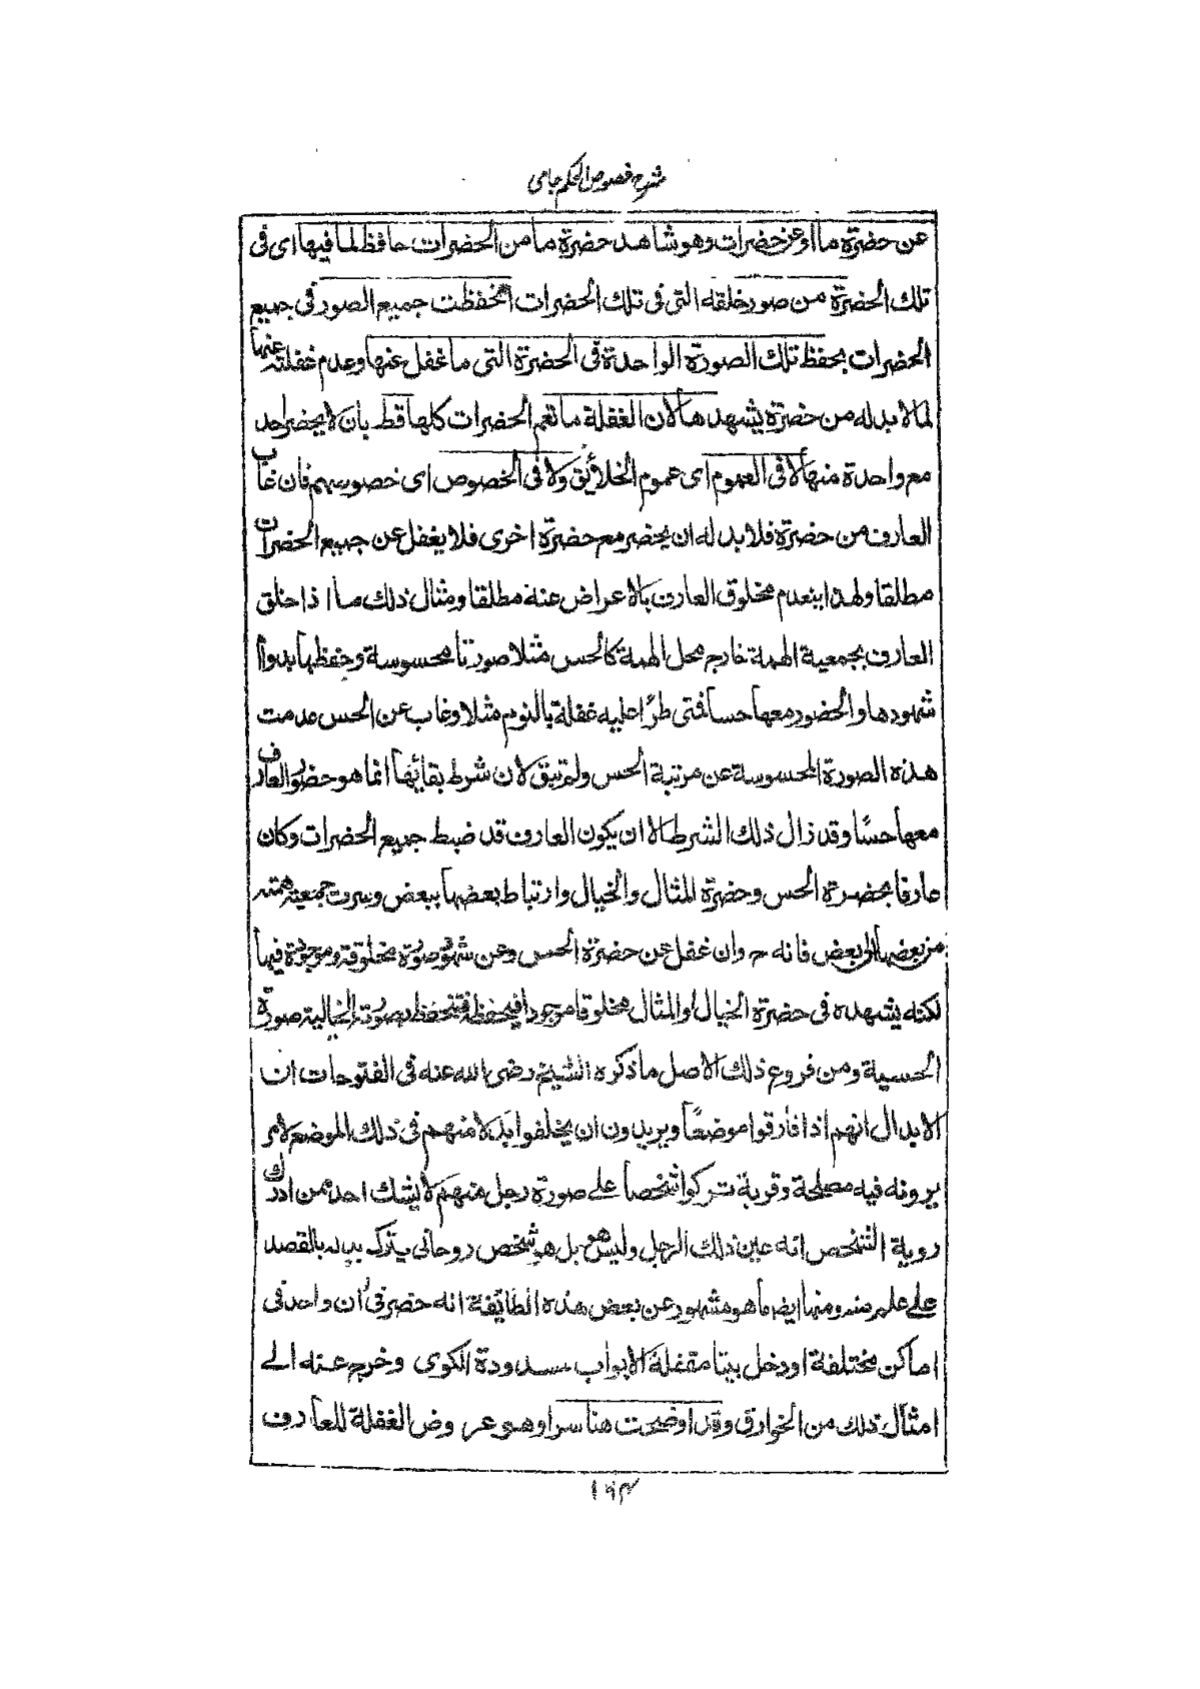 شرح فصوص الحكم جامى
عن حضرة ما او عن حضرات وهو شاهد حضرة ما من الحضرات حافظ لما فيها اى فى
تلك الحضرة من صور خلقه التى فى تلك الحضرات انحفظت جميع الصور فى جميع
الحضرات بحفظ تلك الصورة الواحدة فى الحضرة التى ما غفل عنها وعدم غفلته عنها
لما لا بد له من حضرة يشهدها لان الغفلة ما تعم الحضرات كلها قط بان لا يحضر احد
مع واحدة منها لا فى العموم اى عموم الخلائق ولا فى الخصوص اى خصوصهم فان غاب
العارف من حضرة فلا بد له ان يحضر مع حضرة اخرى فلا يغفل عن جميع الحضرات
مطلقا ولهذا ينعدم مخلوق العارف بالاعراض عنه مطلقا ومثال ذلك ما اذا خلق
العارف بجمعية الهمة خارج محل الهمة كالحس مثلا صورتا محسوسة وحفظها بدوام
شهودها والحضور معها حسا فتى طرًا عليه غفلة بالنوم مثلا وغاب عن الحس عدمت
هذه الصورة المحسوسة عن مرتبة الحس ولم تبق لان شرط بقائها انما هو حضور العارف
معها حسًا وقد زال ذلك الشرط الا ان يكون العارف قد ضبط جميع الحضرات وكان
عارفا بحضرة الحس وحضرة المثال والخيال وارتباط بعضها ببعض وسرت جمعية همته
من بعضها الى بعض فانه ح وان غفل عن حضرة الحس وعن شهود صورة مخلوقة وموجودة فيها
لكنه يشهده فى حضرة الخيال او المثال مخلوقا موجودا فيحفظ فتنحفظ بصورته الخالية صورة
الحسية ومن فروع ذلك الاصل ما ذكره الشيخ رضى الله عنه فى الفتوحات ان
الابدال انهم اذا فارقوا موضعًا ويريدون ان يخلفوا بدلا منهم فى ذلك الموضع لامر
يرونه فيه مصلحة وقربة تركوا شخصا على صورة رجل منهم لا يشك احد ممن ادرك
روية الشخص انه عين ذلك الرجل وليس هو بل هو شخص روحانى يترك بدله بالقصد
على علم منه ومنها ايضا ما هو مشهور عن بعض هذه الطائفة انه حضر فى ان واحد فى
اماكن مختلفة او دخل بيتا مقفلة الابواب مسدودة الكوى وخرج عنه الى
امثال ذلك من الخوارق وقد اوضحت هنا سرا وهو عروض الغفلة للعارف
١٩٣